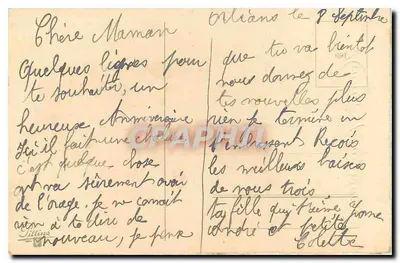 Orléans le 8 Septembre
Chère Maman
Quelques lignes pour
te souhaiter un
heureuse Anniversaire
Ici il fait une
c'est quelque chose
va sûrement avoir
de l'orage. Je ne connait
rien à te dire de
nouveau, je pense
que tu va bientot
nous donnez de
tes nouvelles plus
rien je termine en
t'embrassant Reçois
les meilleurs baisers
de nous trois
ta fille qui t'aime
André et petite
Colette
CPARAMA